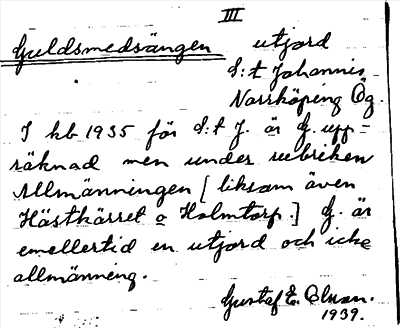 III
Guldsmedsängen utjord
S:t Johannis
Norrköping Ög.
I kb 1935 för S:t J. är G. upp-
räknad men under rubriken
Allmänningen [liksom även
Hästkärret o Holmtorp.] G. är
emellertid en utjord och icke
allmänning.
Gustaf E. Olsson.
1939.